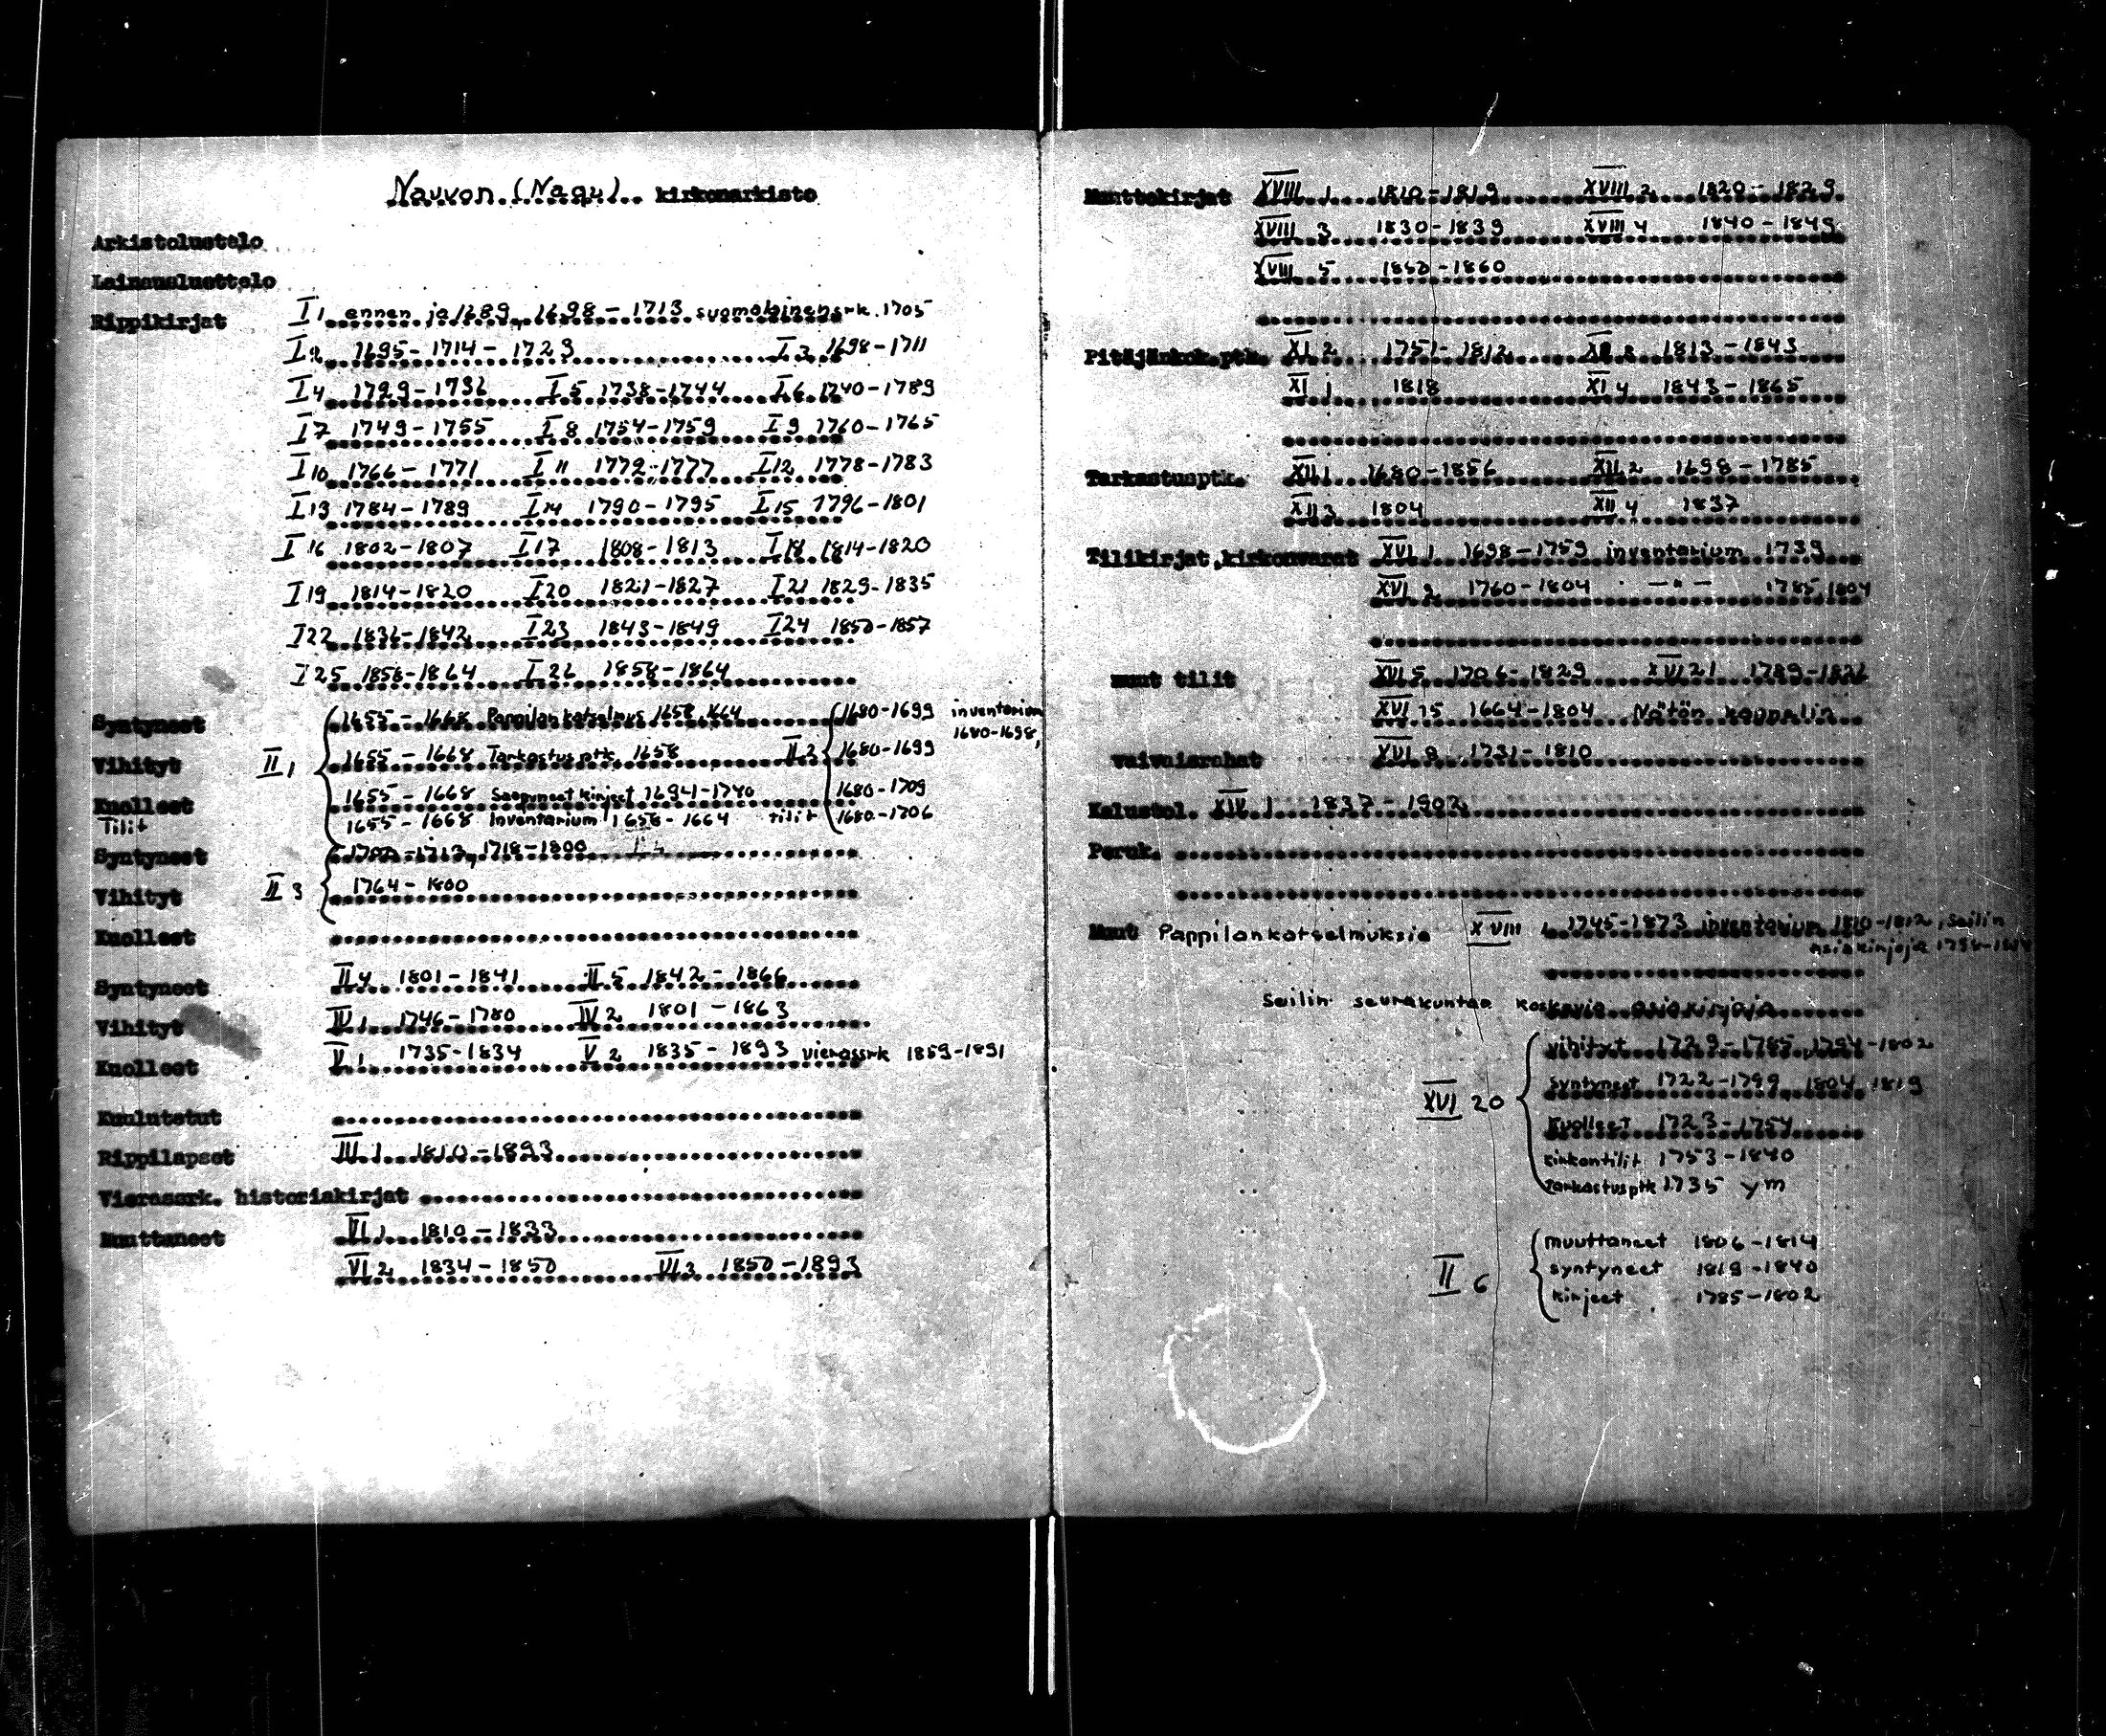 Nauvon (Nagu) kirkonarkisto
Arkistoluetelo
Lainausluettelo
Rippikirjat I 1 ennen ja 1689, 1698-1713 suomalainen srk. 1705
I 2 1695-1714-1723 I 3 1698-1711
I 4 1729-1736 I 5 1738-1744 I 6 1740-1789
I 7 1749-1755 I 8 1754-1759 I 9 1760-1765
I 10 1766-1771 I 11 1772-1777 I 12 1778-1783
I 13 1784-1789 I 14 1790-1795 I 15 1796-1801
I 16 1802-1807 I 17 1808-1813 I 18 1814-1820
I 19 1814-1820 I 20 1821-1827 I 21 1829-1835
I 22 1836-1842 I 23 1843-1849 I 24 1850-1857
I 25 1858-1864 I 26 1858-1864
Syntyneet 1655-1668 Pappilan katselmus 1658, 1664 1680-1699 inventarium
1680-1698,
Vihityt II 1 1655-1668 Tarkastus ptk 1658 II 2 1680-1699
Kuolleet 1655-1668 Saapuneet kirjeet 1694-1740 1680-1709
Tilit 1655-1668 Inventarium 1658-1664 tilit 1680-1706
Syntyneet 1700-1713, 1718-1800
Vihityt II 3 1764-1800
Kuolleet
Syntyneet II 4 1801-1841 II 5 1842-1866
Vihityt IV 1 1746-1780 IV 2 1801-1863
Kuolleet V 1 1735-1834 V 2 1835-1893 vierassrk 1859-1891
Kuulutetut
Rippilapset III 1 1810-1893
Vierassrk. historiakirjat
Muuttaneet VI 1 1810-1833
VI 2 1834-1850 VI 3 1850-1893
Muuttokirjat XVIII 1 1810-1819 XVIII 2 1820-1829
XVIII 3 1830-1839 XVIII 4 1840-1849
XVIII 5 1850-1860
Pitäjänkok.ptk. XI 2 1751-1812 1813-1843
XI 1 1818 XI 4 1843-1865
Tarkastusptk. XII 1 1680-1856 XII 2 1698-1785
XII 3 1804 XII 4 1837
Tilikirjat,kirkonvarat XVI 1 1698-1759 inventarium 1739
XVI 2 1760-1804 -"- 1785, 1804
muut tilit XVI 5 1706-1829 XVI 21 1789-1826
XVI 15 1664-1804 Nötön kappelin
vaivaisrahat XVI 8 1731-1810
Kalustol. XIV 1 1837-1902
Peruk.
Muut Pappilankatselmuksia XVIII 1 1745-1873 inventarium 1810-1812, Seilin
asiakirjoja
Seilin seurakuntaa koskevia asiakirjoja
vihityt 1729-1785, 1794-1802
XVI 20 syntyneet 1722-1799, 1804, 1819
Kuolleet 1723-1754
kirkontilit 1753-1840
tarkastusptk 1735 ym
muuttaneet 1806-1814
II 6 syntyneet 1819-1840
kirjeet 1785-1802